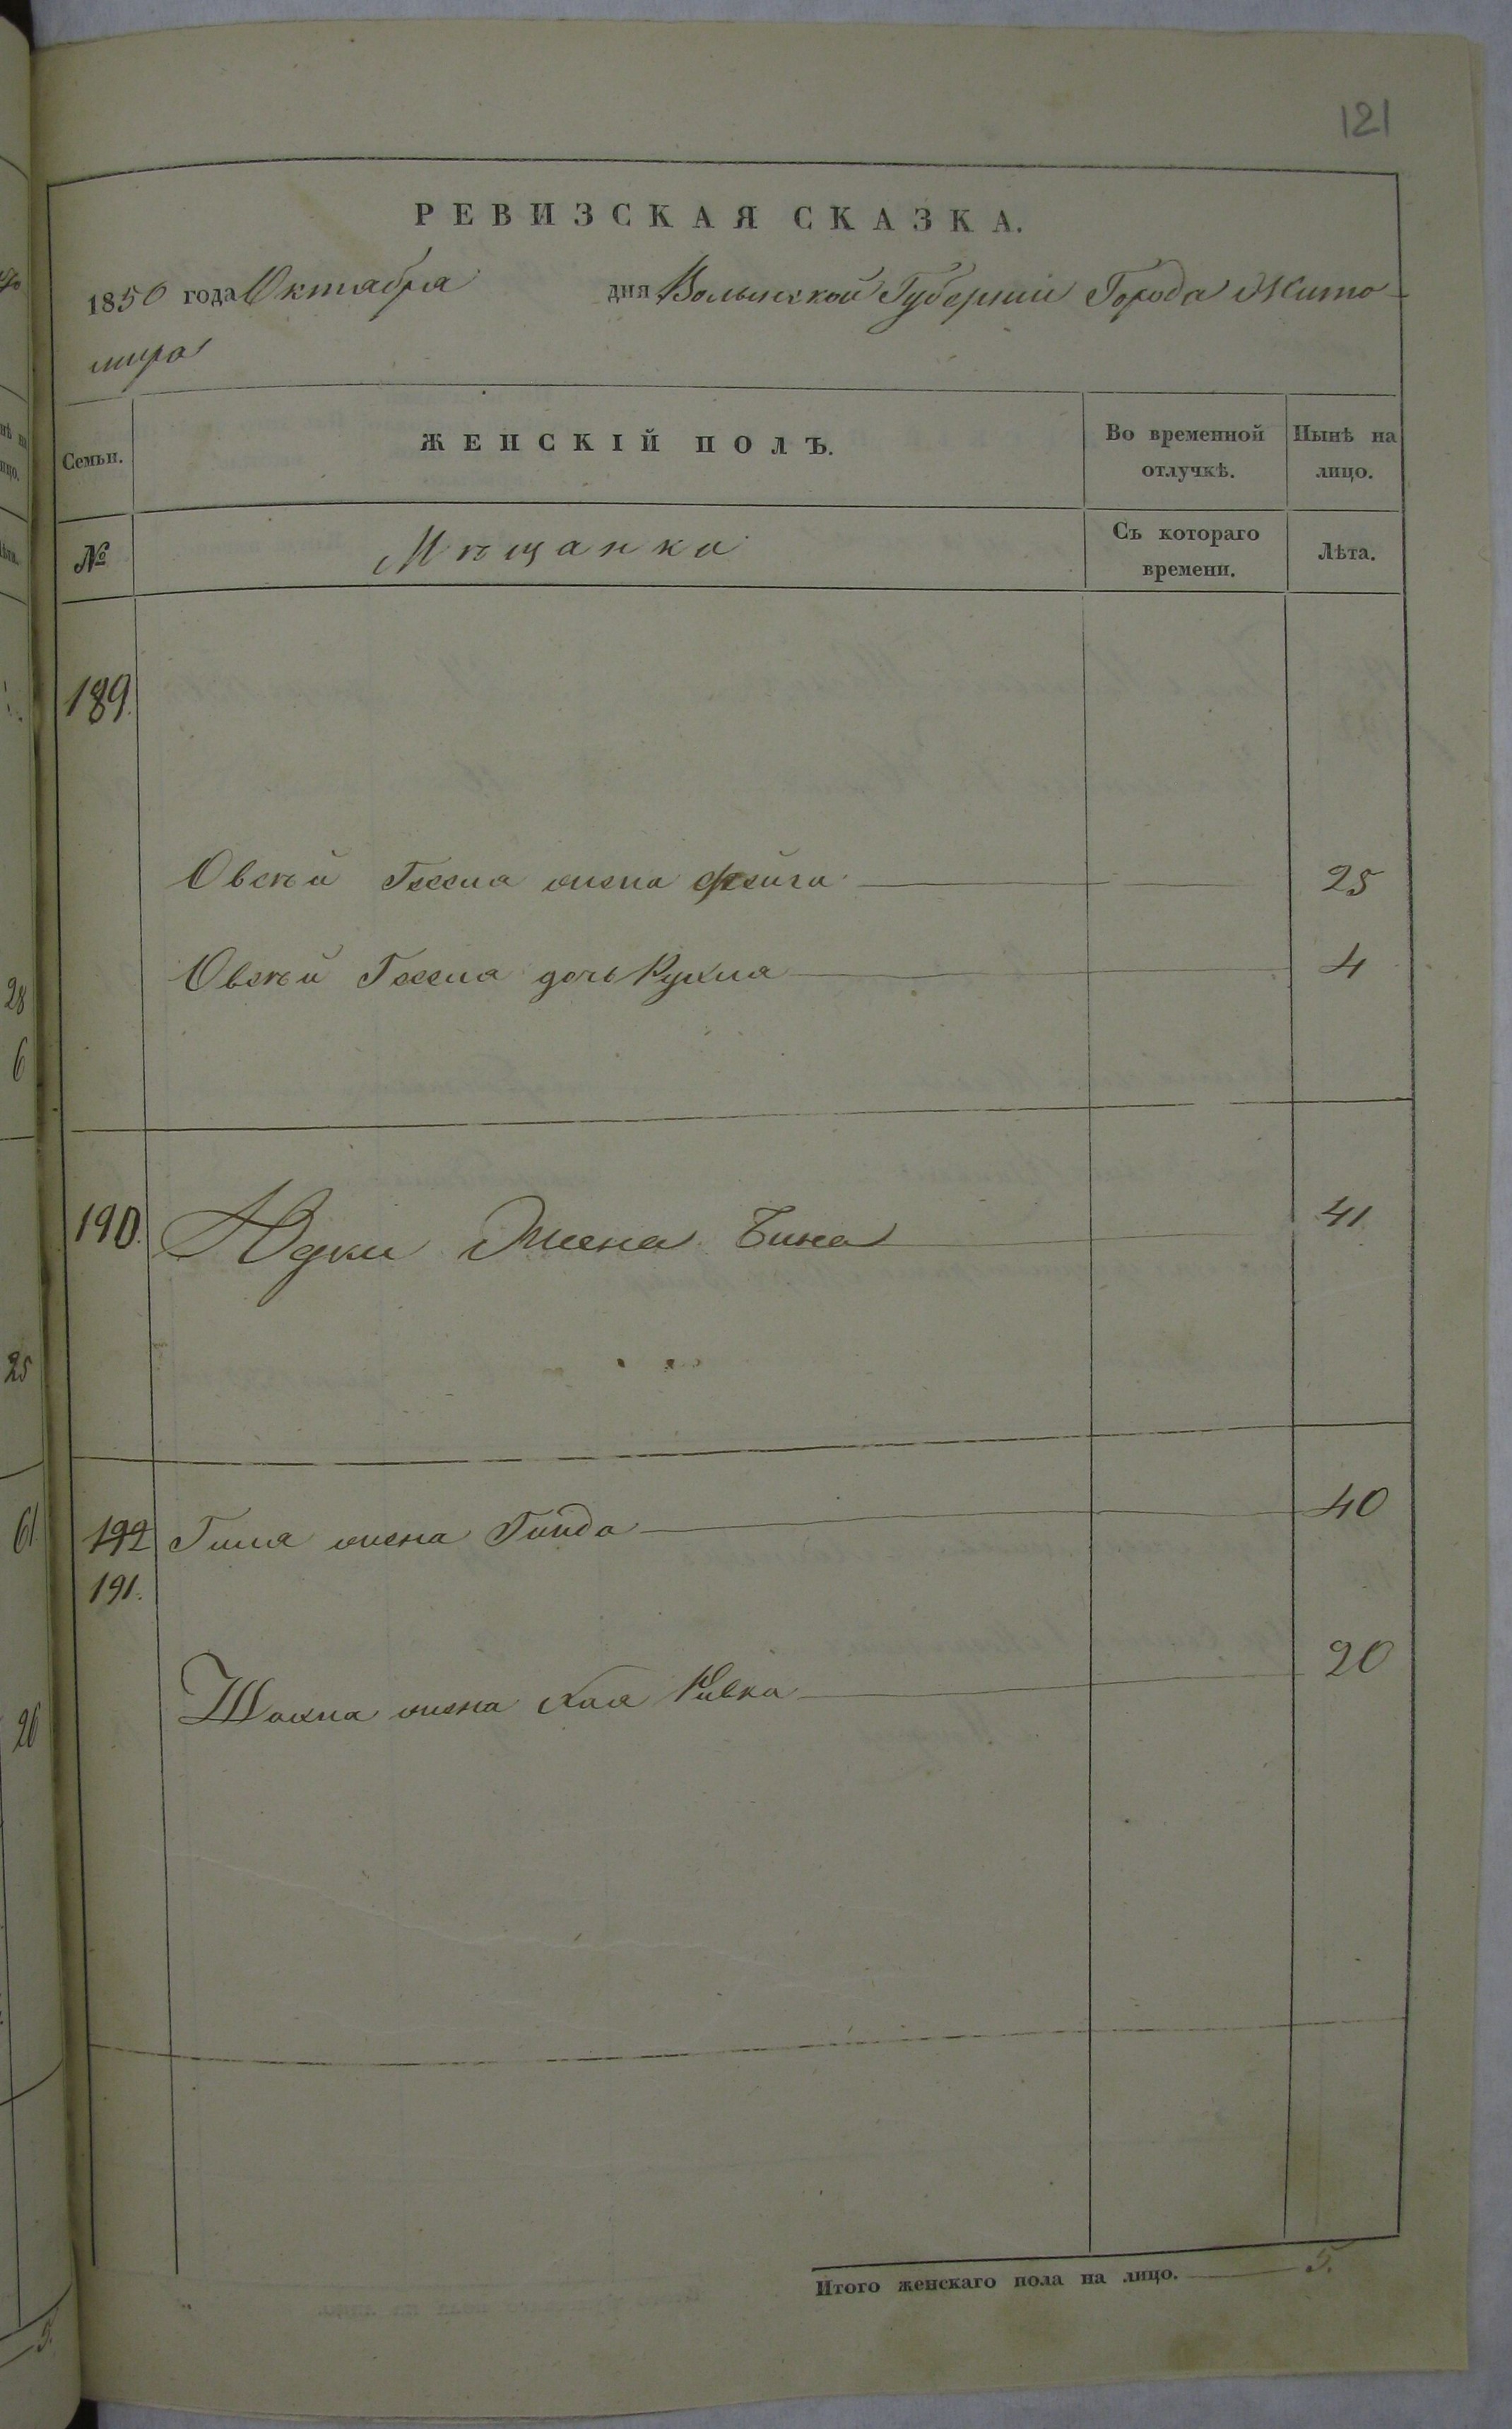 121
РЕВИЗСКАЯ СКАЗКА.
1850 года Октября дня Волынской Губернии Города Жито-
мира
Семьи. ЖЕНСКІЙ ПОЛЪ. Во временной отлучкѣ. Нынѣ на лицо.
№ Мѣщанки Съ котораго времени. Лѣта.
189.
Овсѣй жена Фейга 25
Овсѣй дочь Рухля 4
190. Юдки Жена Бина 41
192 жена 40
191.
Шахна жена Хая Ривка 20
Итого женскаго пола на лицо. 5.
28
6
25
61
26